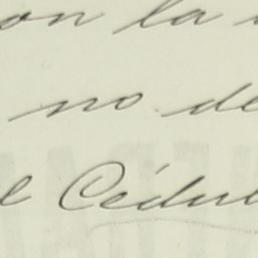 on la
no de
l Cédul